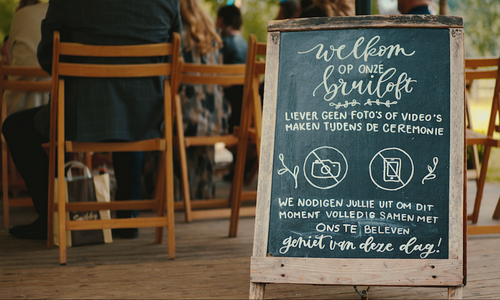 welkom
OP ONZE
bruiloft
LIEVER GEEN FOTO'S OF VIDEO'S
MAKEN TIJDENS DE CEREMONIE
WE NODIGEN JULLIE UIT OM DIT
MOMENT VOLLEDIG SAMEN MET
ONS TE BELEVEN
geniet van deze dag!